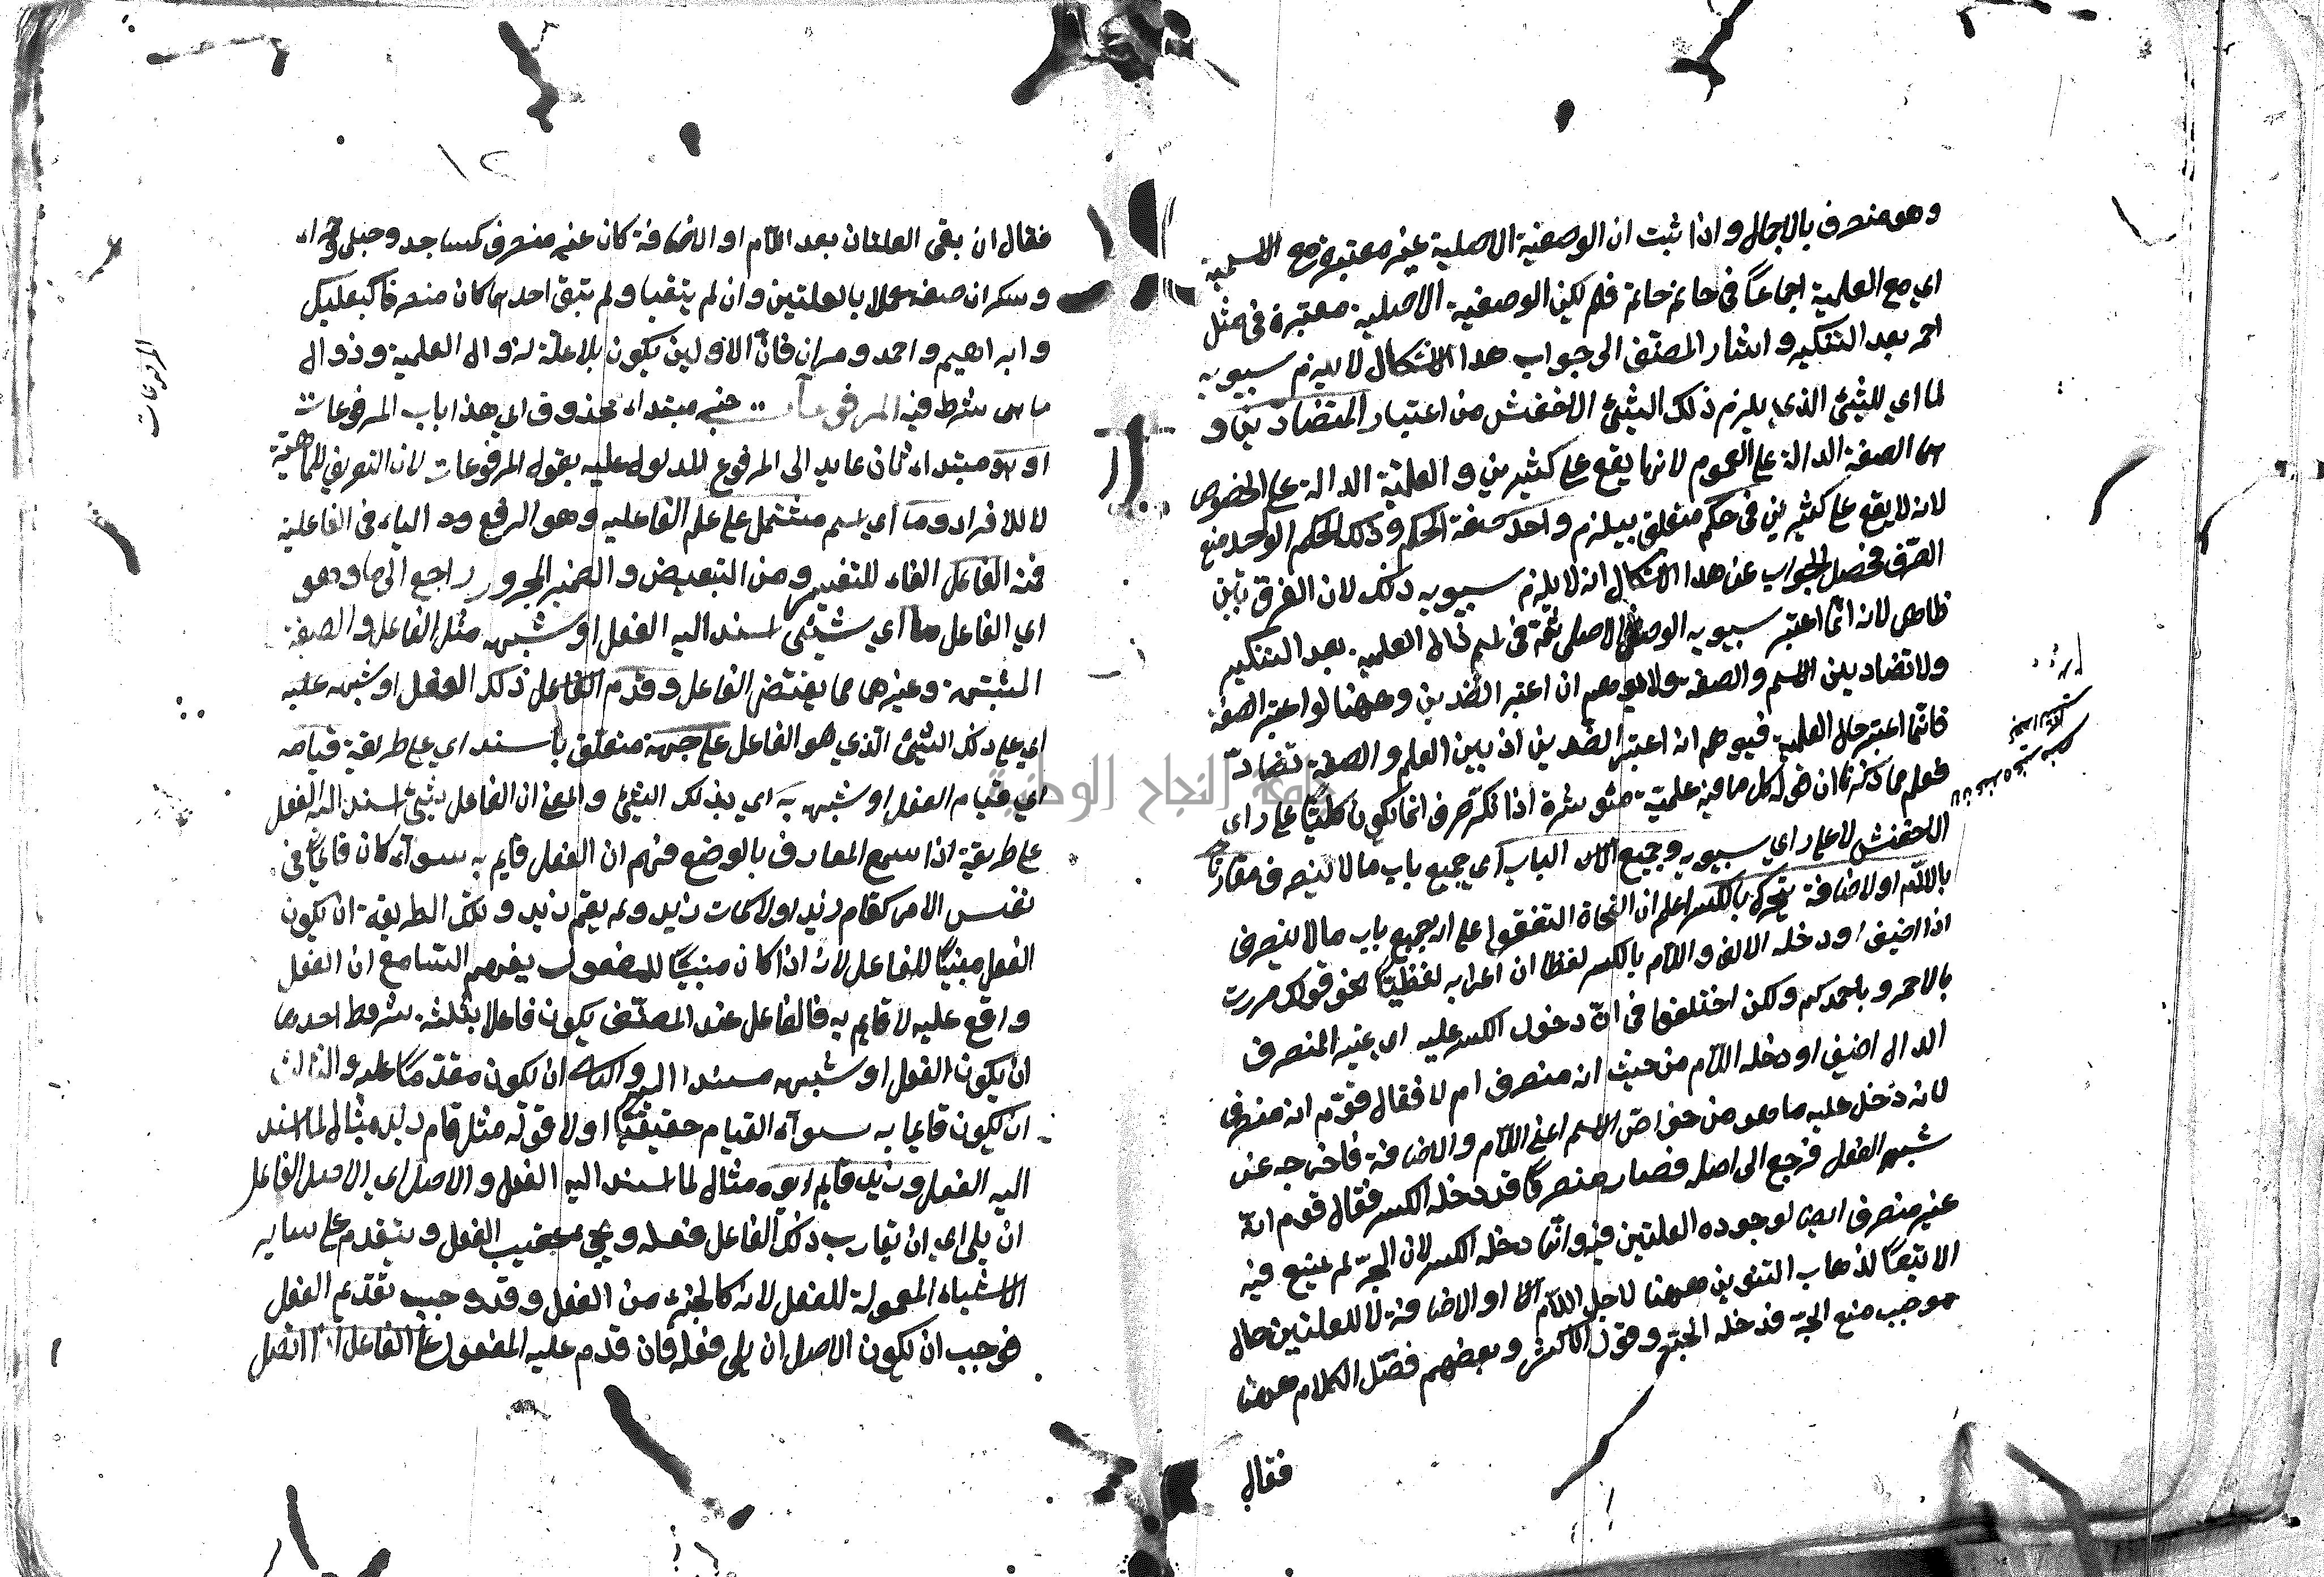 وهو منصرف بالاجمال واذا ثبت ان الوصفية الاصلية غير معتبرة مع الاسمية
اي مع العلمية اجماعًا في حاتم فلم لكن الوصفية الاصلية معتبرة في مثل
احمر بعد التنكير واشار المصنف الى جواب هذا الاشكال لا يلزم سيبويه
لما اي للشئ الذي يلزم ذلك الشئ الاخفش من اعتبار المتضادين و
الصفة الدالة على العموم لانها يقع على كثيرين والعلمية الدالة على الخصوص
لانه لا يقع على كثيرين في حكم متعلق بيلزم واحد صفة الحكم وذلك الحكم الواحد منع
الصرف فحصل الجواب عن هذا الاشكال انه لا يلزم سيبويه ذلك لان الفرق بين
ظاهر لانه انما اعتبر سيبويه الوصفي الاصلي ثمة في اسم زال العلمية بعد التنكير
ولا تضاد بين الاسم والصفة ان اعتبر الضدين وههنا لو اعتبر الصفة
فانما اعتبر حال العلمية فيوهم انه اعتبر الضدين اذ بين العلم والصفة تضادّ
فعلم مما ذكرنا ان قوله كل ما فيه علمية مؤثرة اذا نكّر صرف انما يكون كليًّا على راي
الاخفش لا على راي سيبويه وجميع الباب اي جميع باب ما لا ينصرف
باللام او لاضافة ينجر بالكسر اعلم ان النحاة اتفقوا على ان جميع باب ما لا ينصرف
اذا اضيف او دخله الالف واللام بالكسر لفظا ان اعرابه لفظيًّا نحو قولك مررت
بالاحمر وباحمدكم ولكن اختلفوا في انّ دخول الكسر عليه اي غير المنصرف
اضيف او دخله اللام من حيث انه منصرف ام لا فقال قوم انه منصرف
لانه دخل عليه ما هو من خواصّ الاسم اعني اللام والاضافة فاخرجه عن
شبه الفعل فرجع الى اصله فصار منصرفًا قد دخله الكسر فقال قوم انه
غير منصرف ايضا لوجوده العلتين فيه وانّما دخله الكسر لان الجرّ لم يمنع فيه
الا تبعًا لذهاب التنوين ههنا لاجل اللام او الاضافة لا للعلتين حال
موجب منع الجرّ فدخله الجرّ وقول الاكثر وبعضهم فصّل الكلام ههنا
فقال
١٢
فقال ان بقى العلتان بعد اللام او الاضافة كان غير منصرف كمساجد وحبلى وحمراء
وسكران صفة عملا بالعلتين وان لم يبقيا ولم تبق احدهما كان منصرفا كبعلبك
وابراهيم واحمد وعمران فانّ الاولين يكون بلا علة لزوال العلمية وزوال
ما هى شرط فيه المرفوعات خبر مبتداء محذوف اي هذا باب المرفوعات
او هو مبتداء ثان عايد الى المرفوع المدلول عليه بقوله المرفوعات لان التعريف للماهية
لا للافراد وما اي اسم مشتمل على علم الفاعلية وهو الرفع والياء في الفاعلية
فمنه الفاعل الفاء للتفسير ومن التبعيض والضمير المجرور راجع الى ما وهو
اي الفاعل ما اي شيئى اسند اليه الفعل او شبهه مثل الفاعل والصفة
المشبهة وغيرهما مما يقتضى الفاعل وقدم الفاعل ذلك الفعل او شبهه عليه
اي على ذلك الشئ الذي هو الفاعل على جهة متعلق باسند اي على طريقة قيامه
اي قيام الفعل او شبهه به اي بذلك الشئ والمعنى ان الفاعل شئ اسند اليه الفعل
على طريقة اذا سمع العارف بالوضع فهم ان الفعل قايم به سواء كان قايمًا في
نفس الامر كقام زيد او لا كمات زيد ولم يقم زيد وتلك الطريقة ان يكون
الفعل مبنيًّا للفاعل لانه اذا كان مبنيًّا للمفعول يفهم السامع ان الفعل
واقع عليه لا قايم به فالفاعل عند المصنف يكون فاعلا بثلثة شروط احدها
ان يكون الفعل او شبهه مسندا اليه والثاني ان يكون مقدّمًا عليه والثالث
ان يكون قايما به سواء القيام حقيقيًّا او لا قوله مثل قام زيد مثال لما اسند
اليه الفعل وزيد قايم ابوه مثال لما اسند اليه الفعل والاصل اي الاصل الفاعل
ان يلى اي ان يقارب ذلك الفاعل فعله ويجئ عقيب الفعل ويتقدم على ساير
الاشياء المعمولة للفعل لانه كالجزء من الفعل وقد وجب تقديم الفعل
فوجب ان يكون الاصل ان يلى فعله فان قدم عليه المفعول على الفاعل اذا اتصل
المرفوعات
جامعة النجاح الوطنية